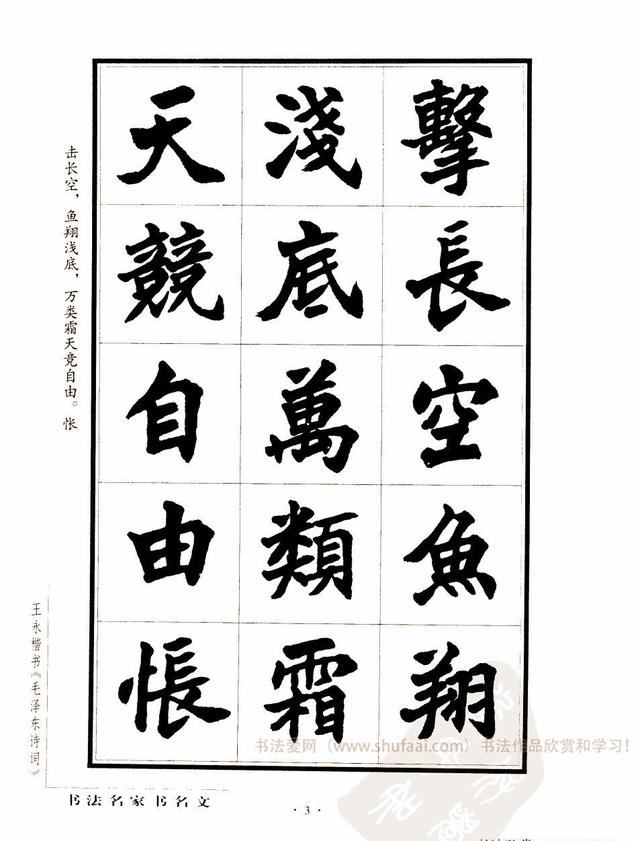 擊長空魚翔
淺底萬類霜
天競自由悵
击长空，鱼翔浅底，万类霜天竞自由。怅
王永楷书《毛泽东诗词》
书法爱网（www.shufaai.com）书法作品欣赏和学习！
书法名家书名文
·3·